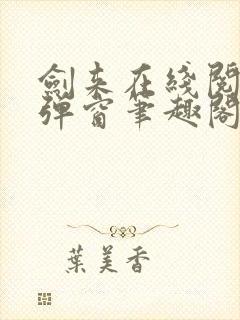 劍来在綫閱
弹窗筆趣閣
葉美香